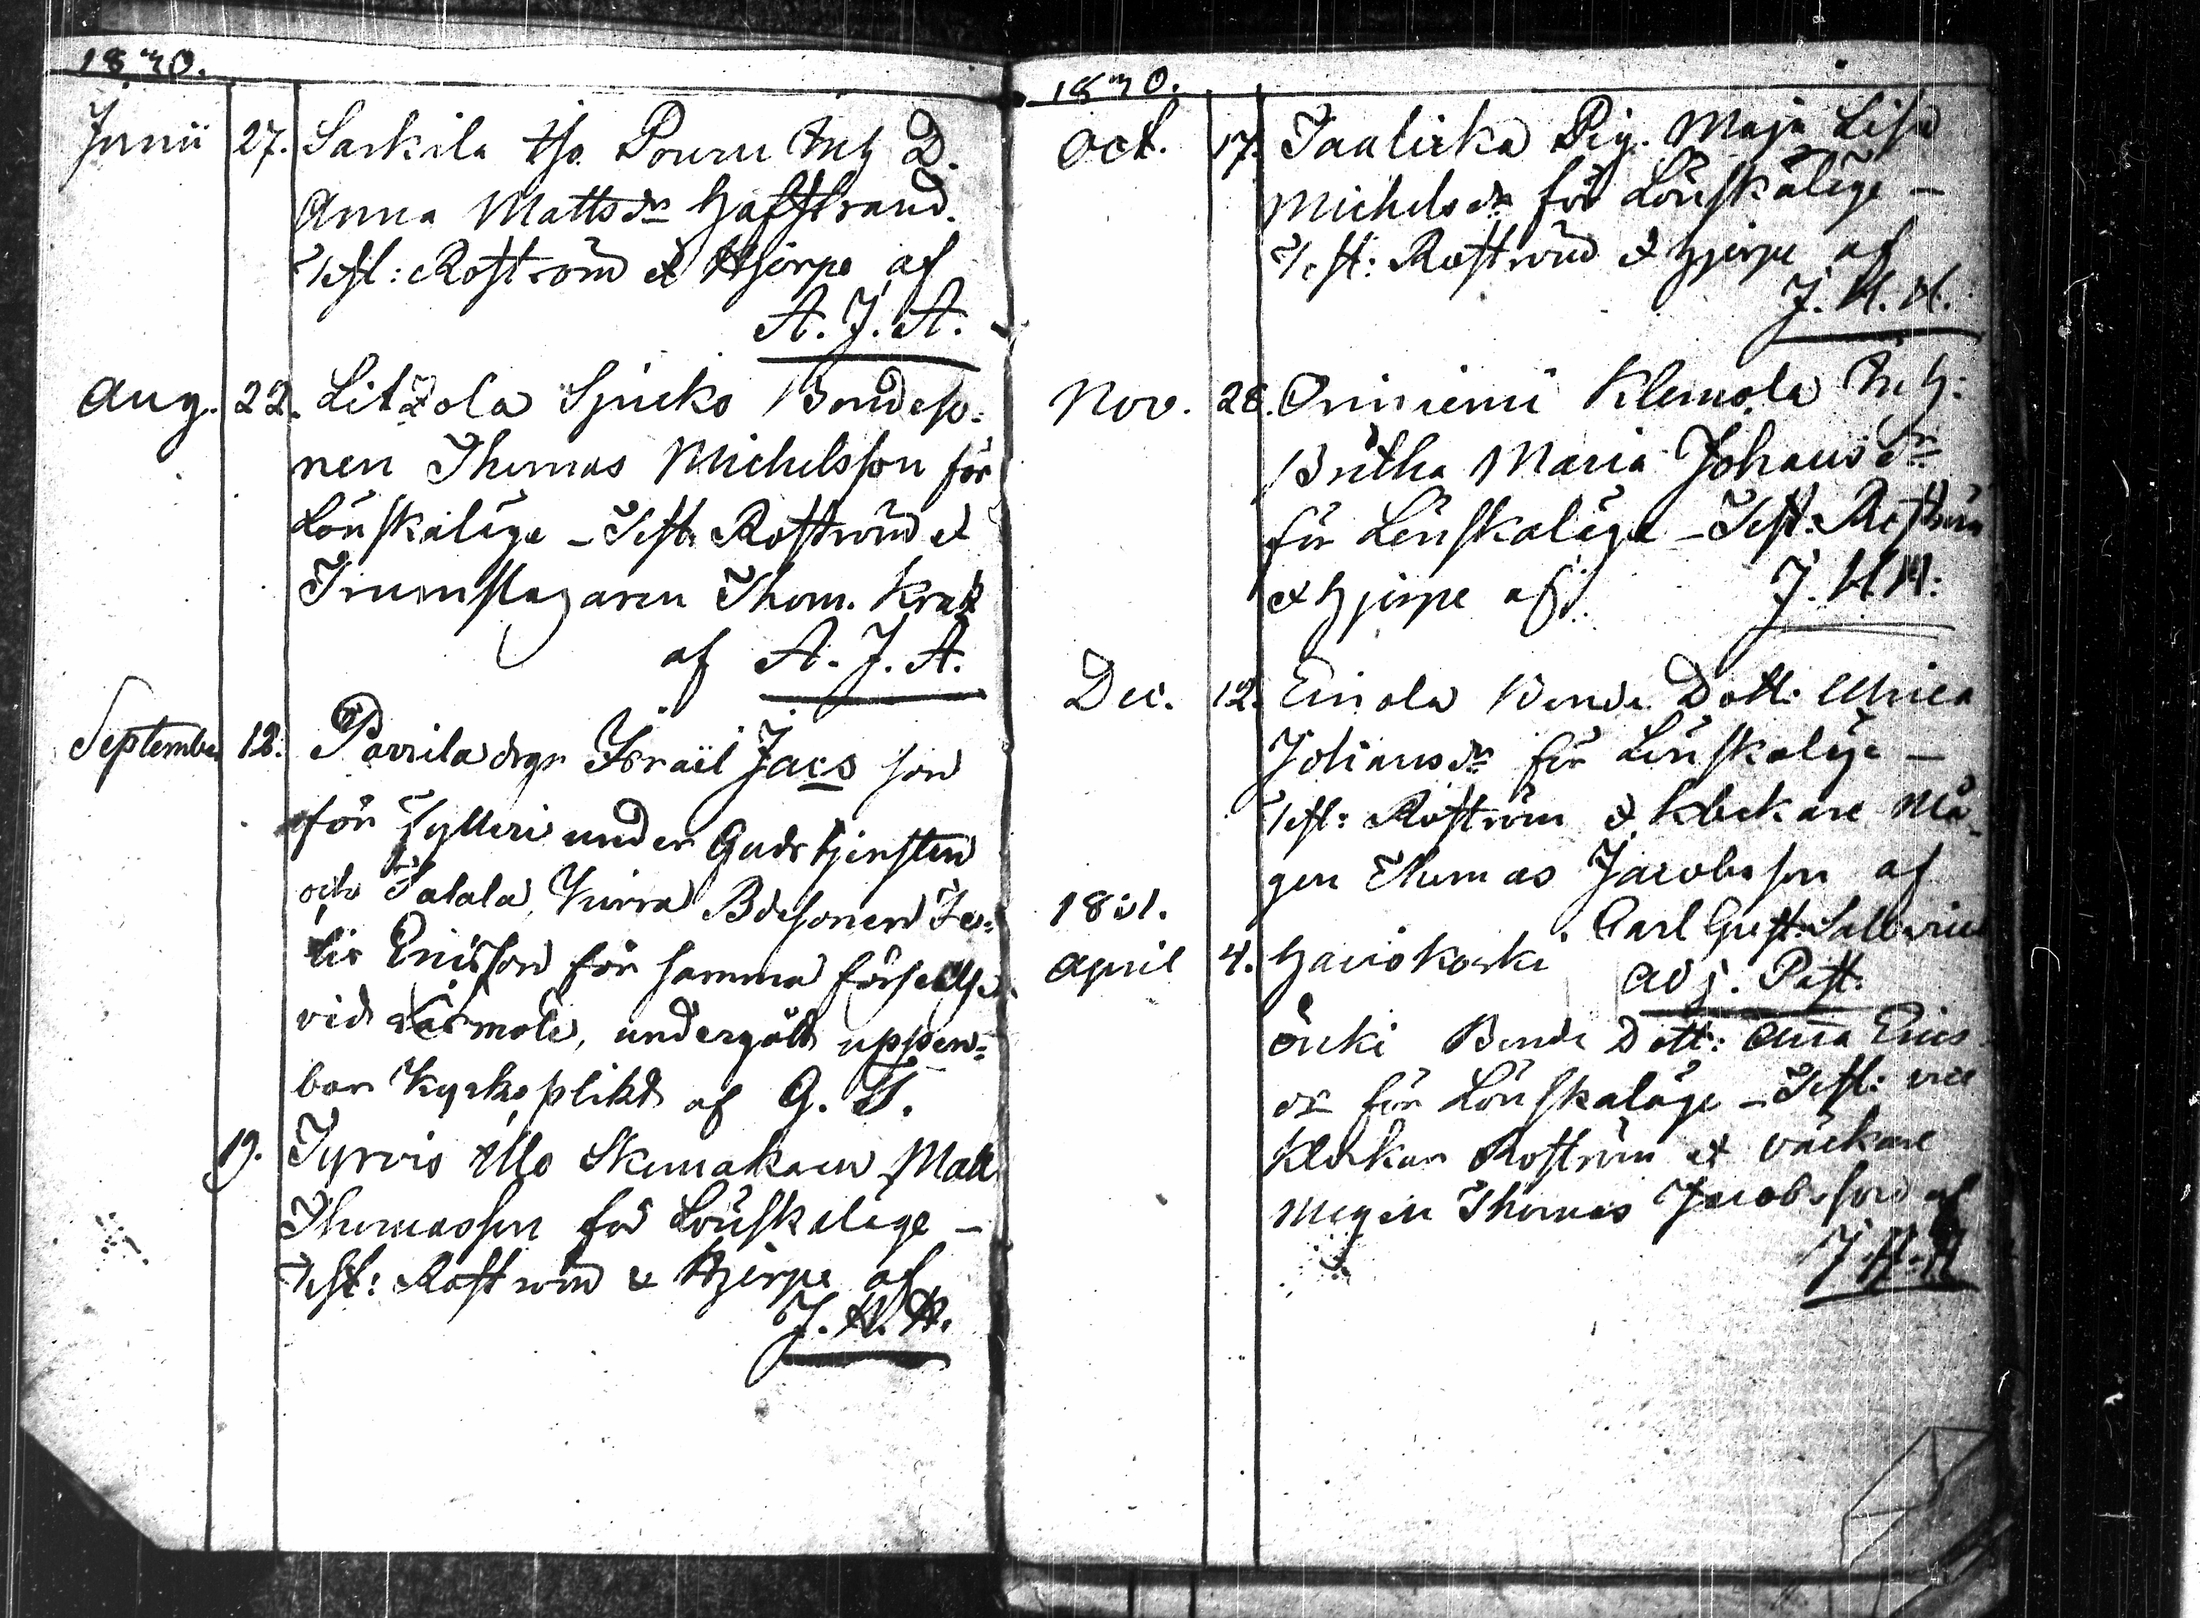 1830.
Junii 27. Sarkila tjo. Pouru Inh D.
Anna Mattsdr Hafstrand.
Test: Roström et Hjerpe af
A. J. A.
Aug. 22. Litzola Sjuks Bondeso-
nen Thomas Michelsson för
Lönskaläge – Test. Roström et
Trumslagaren Thom. Krak
af A. J. A.
September 12. Pavila drgn Israël Jacs son
för fylleri under Gudstjensten
och Salala, Bdesonen
Ericsson för samma förseelse
vid, undergått uppen-
bar Kyrkoplikt af G. T.
19. Tyrvis Ullo Skomakaren Matt
Thomasson för Lönskaläge –
Test: Roström & Hjerpe af
J. H. H.
1830.
Oct. 17. Pig. Maja Lisa
Michelsdr för Lönskaläge –
Test: Roström et Hjerpe af
J. H. H.
Nov. 28. Oriniemi Klemola Inh:
Britha Maria Johansdr
för Lönskaläge – Test: Roström
et Hjerpe af. J. H. H.
Dec. 12. Einola Bonde Dott: Ulrica
Johansdr för Lönskaläge –
Test: Roström et klockare Må-
gen Thomas Jacobsson af
Carl Gust. Sallmén
adj. Past.
1831.
April 4. Hanskoski
Bonde Dott: Anna Erics
dr för Lönskaläge – Test: vice
Klockar Roström et väckare
Mågen Thomas Jacobsson af
J. H. H